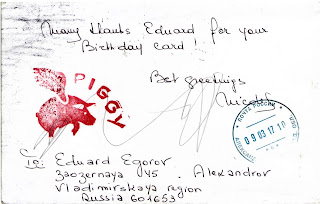 Many thanks Eduard for your
Birthday card!
Best greetings
PIGGY
ПОЧТА РОССИИ
09 03 17 10
To: Eduard Egorov
Zaozernaya 45. Alexandrov
Vladimirskaya region
Russia 601653